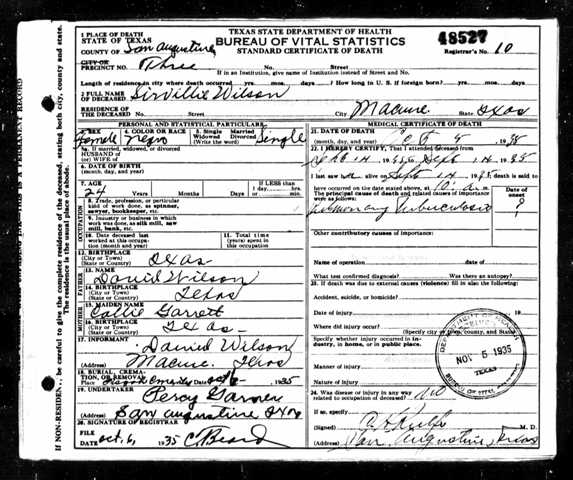 1 PLACE OF DEATH
STATE OF TEXAS
COUNTY OF San Augustine
CITY OR
PRECINCT NO. Three No. Street
TEXAS STATE DEPARTMENT OF HEALTH
BUREAU OF VITAL STATISTICS
STANDARD CERTIFICATE OF DEATH
48527
Registrar's No. 10
If in an Institution, give name of Institution instead of Street and No.
Length of residence in city where death occurred yrs. mos. days. How long in U. S. if foreign born? yrs. mos. days
2 FULL NAME
OF DECEASED Sirvillie Wilson
RESIDENCE OF
THE DECEASED No. Street City Macune State Texas
PERSONAL AND STATISTICAL PARTICULARS
3. SEX Female
4. COLOR OR RACE Negro
5. Single Married Widowed Divorced (Write the word) Single
5a. If married, widowed, or divorced
HUSBAND of
(or) WIFE of
6. DATE OF BIRTH
(month, day, and year)
7. AGE 24 Years Months Days If LESS than 1 day hrs. min.
OCCUPATION
8. Trade, profession, or particular
kind of work done, as spinner,
sawyer, bookkeeper, etc.
9. Industry or business in which
work was done, as silk mill, saw
mill, bank, etc.
10. Date deceased last
worked at this occupation
(month and year)
11. Total time
(years) spent in
this occupation
12. BIRTHPLACE
(City or Town)
(State or Country) Texas
FATHER
13. NAME David Wilson
14. BIRTHPLACE
(City or Town)
(State or Country) Texas
MOTHER
15. MAIDEN NAME Callie Garrett
16. BIRTHPLACE
(City or Town)
(State or Country) Texas
17. INFORMANT David Wilson
(Address) Macune, Texas
18. BURIAL, CREMATION, OR REMOVAL
Place Date Oct 6 1935
19. UNDERTAKER Percy Garner
(Address) San Augustine Texas
20. SIGNATURE OF REGISTRAR
FILE
DATE Oct. 6, 1935 C Beard
MEDICAL CERTIFICATE OF DEATH
21. DATE OF DEATH
(month, day, and year) Oct 5, 1935
22. I HEREBY CERTIFY, That I attended deceased from
Sept 14, 1935 Sept 14, 1935
I last saw alive on Sept 14, 1935 death is said to
have occurred on the date stated above, at 10, a. m.
The principal cause of death and related causes of
importance were as follows:
Date of onset
Pulmonary Tuberculosis ?
Other contributory causes of importance:
Name of operation Date of
What test confirmed diagnosis? Was there an autopsy?
23. If death was due to external causes (violence) fill in also the
following:
Accident, suicide, or homicide?
Date of injury
Where did injury occur?
(Specify city or town, county, and State)
Specify whether injury occurred in industry, in home, or in public place.
Manner of injury
Nature of injury
24. Was disease or injury in any way
related to occupation of deceased? no
If so, specify
(Signed) M. D.
(Address) San Augustine, Texas
NOV 5 1935
TEXAS